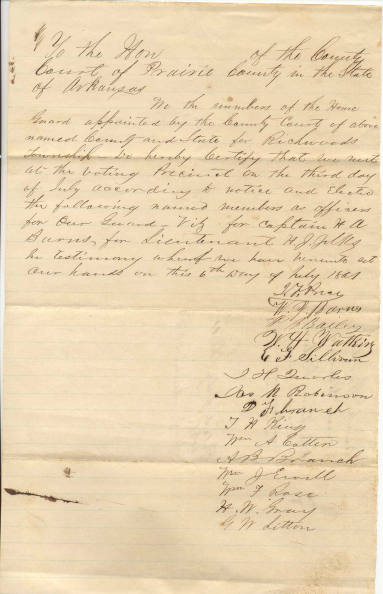 To the Hon of the County
Court of Prairie County in the State
of Arkansas
We the members of the Home
Guard appointed by the County Court of above
named County and State for Richwoods
Township Do hereby Certify that we met
at the voting Precinct on the third day
of July according to notice and Elected
the following named members as officers
for Our Guard - Viz for Captain H A
Burns, for Lieutenant H J
In testimony whereof we have hereunto set
Our hands on this 6th Day of July 1861
Price
W. F. Barns
Bailey
W. H. Watkins
Sillivan
J H Quarles
Jas N Robinson
D F branch
J A King
Wm A Cotten
A B Branch
Wm J Ewell
Wm F Rose
H. W. Gray
G W Litton